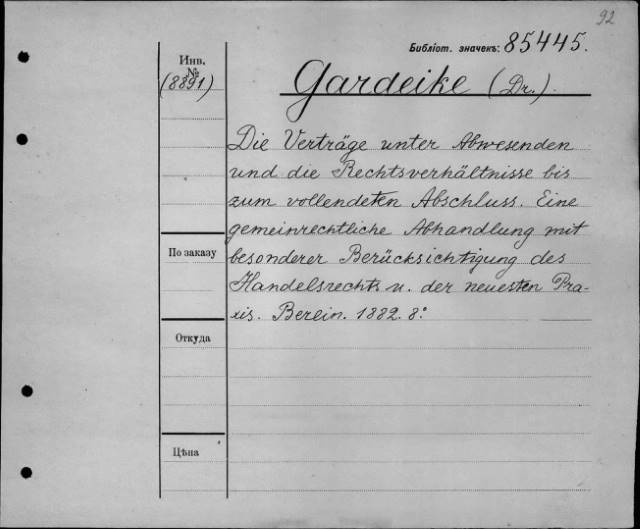 92
Библіот. значекъ: 85445.
Инв.
№
(8891)
Gardeike (Dr.).
Die Verträge unter Abwesenden
und die Rechtsverhältnisse bis
zum vollendeten Abschluss. Eine
gemeinrechtliche Abhandlung mit
besonderer Berücksichtigung des
Handelsrechts u. der neuesten Pra-
xis. Berein. 1882. 8º.
По заказу
Откуда
Цѣна